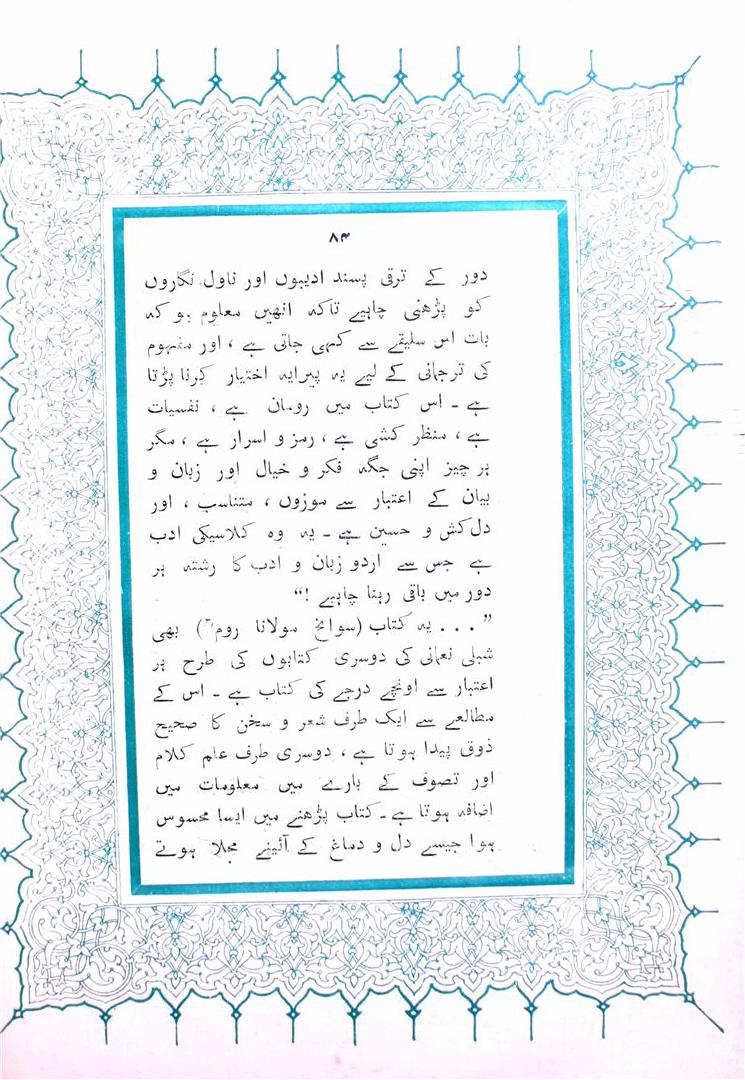 ۸۴
دور کے ترقی پسند ادیبوں اور ناول نگاروں
کو پڑھنی چاہیے تاکہ انھیں معلوم ہو کہ
بات اس سلیقے سے کہی جاتی ہے ، اور مفہوم
کی ترجمانی کے لیے یہ پیرایہ اختیار کرنا پڑتا
ہے ۔ اس کتاب میں رومان ہے ، نفسیات
ہے ، منظر کشی ہے ، رمز و اسرار ہے ، مگر
ہر چیز اپنی جگہ فکر و خیال اور زبان و
بیان کے اعتبار سے موزوں ، متناسب ، اور
دل کش و حسین ہے ۔ یہ وہ کلاسیکی ادب
ہے جس سے اردو زبان و ادب کا رشتہ ہر
دور میں باقی رہنا چاہیے !“
”. . . یہ کتاب (سوانح مولانا رومؒ) بھی
شبلی نعمانی کی دوسری کتابوں کی طرح ہر
اعتبار سے اونچے درجے کی کتاب ہے ۔ اس کے
مطالعے سے ایک طرف شعر و سخن کا صحیح
ذوق پیدا ہوتا ہے ، دوسری طرف علم کلام
اور تصوف کے بارے میں معلومات میں
اضافہ ہوتا ہے ۔ کتاب پڑھنے میں ایسا محسوس
ہوا جیسے دل و دماغ کے آئینے مجلا ہوتے